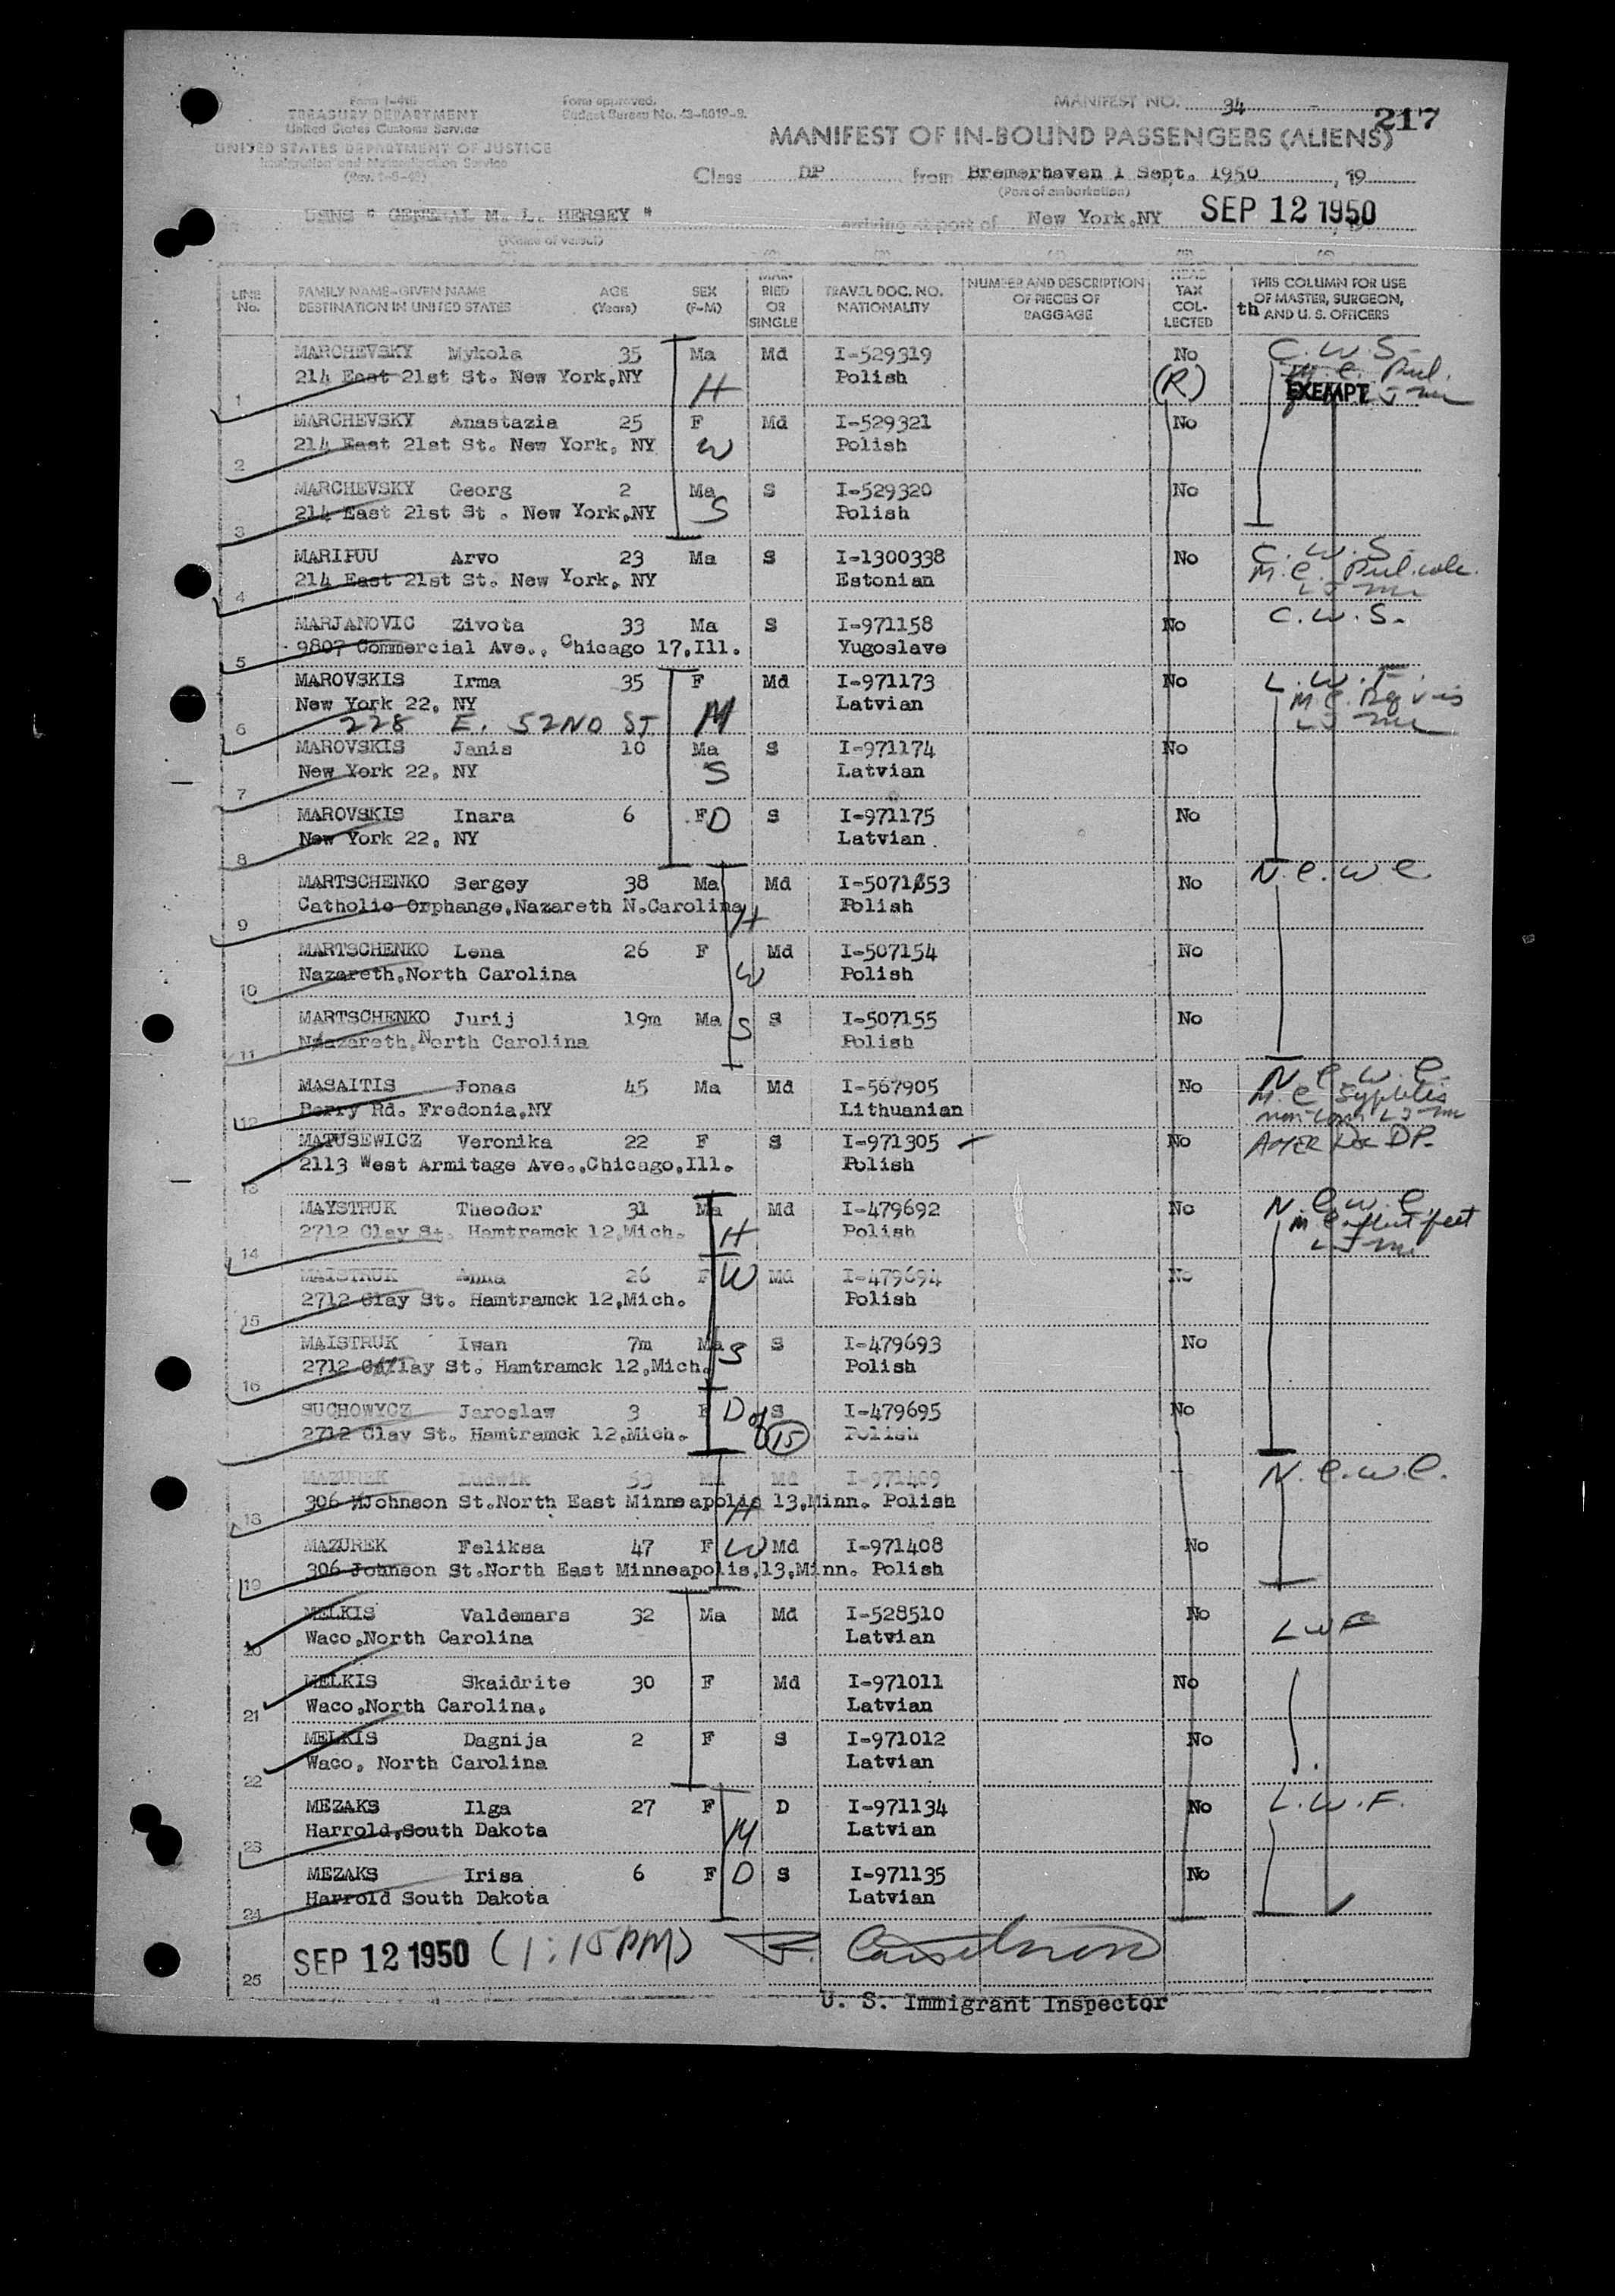 Form I-418
TREASURY DEPARTMENT
United States Customs Service
UNITED STATES DEPARTMENT OF JUSTICE
Immigration and Naturalization Service
Form approved.
Budget Bureau No. 43-R019-2.
MANIFEST NO. 34
217
MANIFEST OF IN-BOUND PASSENGERS (ALIENS)
Class DP from Bremerhaven 1 Sept. 1950, 19
(Port of embarkation)
USNS " GENERAL M. L. HERSEY " arriving at port of New York,NY SEP 12 1950
(Name of vessel)
LINE No. FAMILY NAME-GIVEN NAME DESTINATION IN UNITED STATES AGE (Years) SEX (F-M) MARRIED OR SINGLE TRAVEL DOC. NO. NATIONALITY NUMBER AND DESCRIPTION OF PIECES OF BAGGAGE HEAD TAX COLLECTED THIS COLUMN FOR USE OF MASTER, SURGEON, AND U. S. OFFICERS
th
MARCHEVSKY Mykola 35 Ma Md I-529319 No C.W.S.
1 214 East 21st St. New York,NY H Polish (R) EXEMPT
MARCHEVSKY Anastazia 25 F Md I-529321 No
2 214 East 21st St. New York, NY W Polish
MARCHEVSKY Georg 2 Ma S I-529320 No
3 214 East 21st St . New York,NY S Polish
MARIPUU Arvo 23 Ma S I-1300338 No C.W.S.
4 214 East 21st St. New York, NY Estonian M.C.
MARJANOVIC Zivota 33 Ma S I-971158 No C.W.S.
5 9807 Commercial Ave., Chicago 17,Ill. Yugoslave
MAROVSKIS Irma 35 F Md I-971173 No L.W.F.
New York 22, NY Latvian M.C.
6 228 E. 52ND ST M
MAROVSKIS Janis 10 Ma S I-971174 No
7 New York 22, NY S Latvian
MAROVSKIS Inara 6 F D S I-971175 No
8 New York 22, NY Latvian
MARTSCHENKO Sergey 38 Ma Md I-507153 No N.C.W.C.
9 Catholic Orphange,Nazareth N.Carolina H Polish
MARTSCHENKO Lena 26 F Md I-507154 No
10 Nazareth,North Carolina W Polish
MARTSCHENKO Jurij 19m Ma S S I-507155 No
11 Nazareth,North Carolina Polish
MASAITIS Jonas 45 Ma Md I-567905 No N.C.W.C.
12 Berry Rd. Fredonia,NY Lithuanian M.C. Syphilis
MATUSEWICZ Veronika 22 F S I-971305 No
13 2113 West Armitage Ave.,Chicago,Ill. Polish
MAYSTRUK Theodor 31 Ma Md I-479692 No N.C.W.C.
14 2712 Clay St. Hamtramck 12,Mich. H Polish M.C. flat feet
MAISTRUK Anna 26 F W Md I-479694 No
15 2712 Clay St. Hamtramck 12,Mich. Polish
MAISTRUK Iwan 7m Ma S S I-479693 No
16 2712 Clay St. Hamtramck 12,Mich. Polish
SUCHOWYCZ Jaroslaw 3 F D of 15 S I-479695 No
2712 Clay St. Hamtramck 12,Mich. Polish
MAZUREK Ludwik 53 Ma Md I-971409 N.C.W.C.
18 306 Johnson St.North East Minneapolis 13,Minn. Polish H
MAZUREK Feliksa 47 F W Md I-971408 No
19 306 Johnson St.North East Minneapolis,13,Minn. Polish
MELKIS Valdemars 32 Ma Md I-528510 No LWF
20 Waco,North Carolina Latvian
MELKIS Skaidrite 30 F Md I-971011 No
21 Waco,North Carolina. Latvian
MELKIS Dagnija 2 F S I-971012 No
22 Waco, North Carolina Latvian
MEZAKS Ilga 27 F D I-971134 No L.W.F.
23 Harrold,South Dakota M Latvian
MEZAKS Irisa 6 F D S I-971135 No
24 Harrold South Dakota Latvian
25 SEP 12 1950 (1:15PM)
U. S. Immigrant Inspector